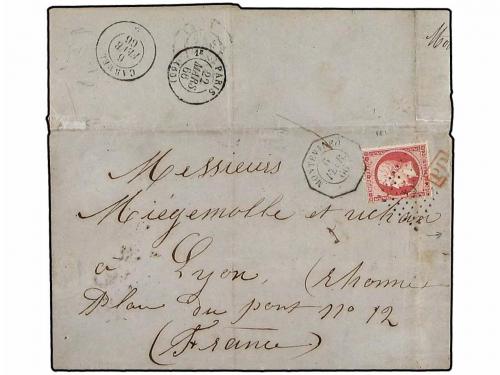 CARMEL
6
FEBR
66
PARIS
22
MARS
66
(60)
Mo
MONTEVIDEO
6
FEVR
66
PD
Messieurs
Miégemolle et
a Lyon, (rhone
Plan du pont No 12
(France)